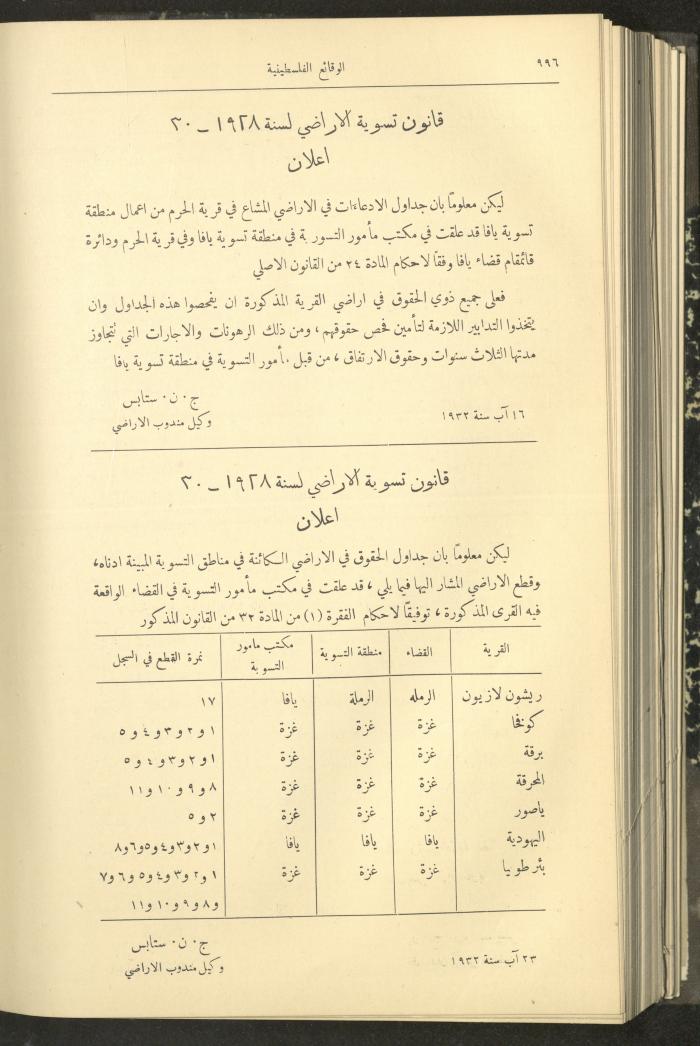 ٩٩٦
الوقائع الفلسطينية
قانون تسوية الاراضي لسنة ١٩٢٨ – ٣٠
اعلان
ليكن معلومًا بان جداول الادعاءَات في الاراضي المشاع في قرية الحرم من اعمال منطقة
تسوية يافا قد علقت في مكتب مأمور التسوية في منطقة تسوية يافا وفي قرية الحرم ودائرة
قائمقام قضاء يافا وفقًا لاحكام المادة ٢٤ من القانون الاصلي
فعلى جميع ذوي الحقوق في اراضي القرية المذكورة ان يفحصوا هذه الجداول وان
يتخذوا التدابير اللازمة لتأمين فحص حقوقهم، ومن ذلك الرهونات والاجارات التي تتجاوز
مدتها الثلاث سنوات وحقوق الارتفاق، من قبل مأمور التسوية في منطقة تسوية يافا
ج. ن. ستابس
١٦ آب سنة ١٩٣٢
وكيل مندوب الاراضي
قانون تسوية الاراضي لسنة ١٩٢٨ – ٣٠
اعلان
ليكن معلومًا بان جداول الحقوق في الاراضي الكائنة في مناطق التسوية المبينة ادناه،
وقطع الاراضي المشار اليها فيما يلي، قد علقت في مكتب مأمور التسوية في القضاء الواقعة
فيه القرى المذكورة، توفيقًا لاحكام الفقرة (١) من المادة ٣٣ من القانون المذكور
القرية القضاء منطقة التسوية مكتب مامور التسوية نمرة القطع في السجل
ريشون لازيون الرمله الرملة يافا ١٧
كوفخا غزة غزة غزة ١ و ٢ و ٣ و ٤ و ٥
برقة غزة غزة غزة ١ و ٢ و ٣ و ٤ و ٥
المحرقة غزة غزة غزة ٨ و ٩ و ١٠ و ١١
ياصور غزة غزة غزة ٢ و ٥
اليهودية يافا يافا يافا ١ و ٢ و ٣ و ٤ و ٥ و ٦ و ٨
بئر طوبيا غزة غزة غزة ١ و ٢ و ٣ و ٤ و ٥ و ٦ و ٧
و ٨ و ٩ و ١٠ و ١١
ج. ن. ستابس
٢٣ آب سنة ١٩٣٢
وكيل مندوب الاراضي